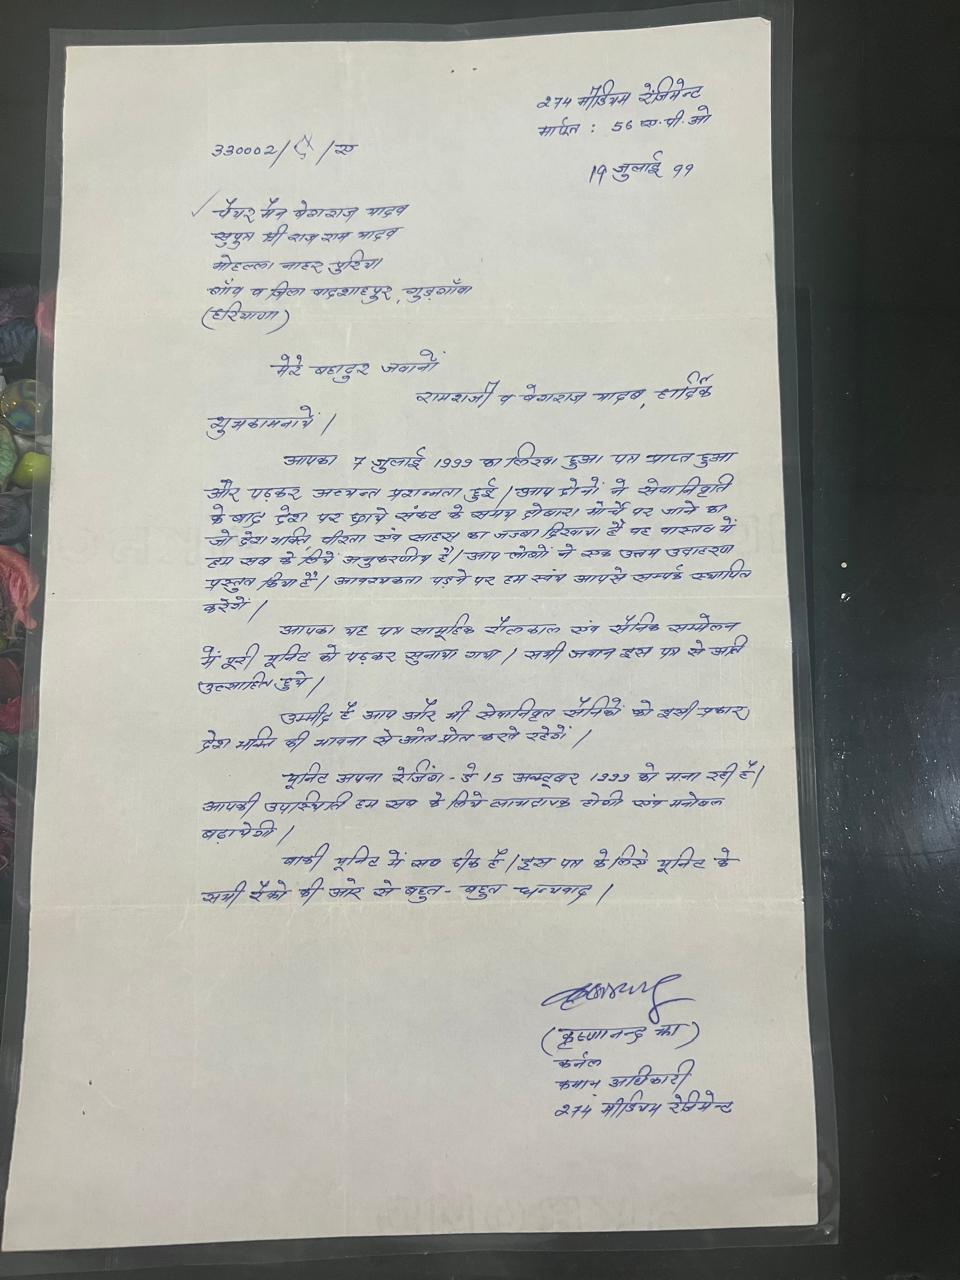 274 मीडियम रेजिमेन्ट
मार्फत : 56 ए. पी. ओ
330002/ /ए
19 जुलाई 99
चेयर मैन बेगराज यादव
सुपुत्र श्री राज राम यादव
मोहल्ला नाहर पुरिया
गाँव व जिला बादशाहपुर, गुड़गाँवा
(हरियाणा)
मेरे बहादुर जवानों
रामराजी व बेगराज यादव, हार्दिक
शुभकामनायें।
आपका 7 जुलाई 1999 का लिखा हुआ पत्र प्राप्त हुआ
और पढ़कर अत्यन्त प्रशन्नता हुई। आप दोनों ने सेवानिवृति
के बाद देश पर छाये संकट के समय दोबारा मोर्चे पर जाने का
जो देश भक्ति, वीरता एंव साहस का जज्बा दिखाया है वह वास्तव में
हम सब के लिये अनुकरणीय है। आप लोगों ने एक उत्तम उदाहरण
प्रस्तुत किया है। आवश्यकता पड़ने पर हम स्वंय आपसे सम्पर्क स्थापित
करेगें।
आपका यह पत्र सामूहिक रौलकाल एंव सैनिक सम्मेलन
में पूरी यूनिट को पढ़कर सुनाया गया। सभी जवान इस पत्र से अति
उत्साहित हुये।
उम्मीद है आप और भी सेवानिवृत सैनिकों को इसी प्रकार
देश भक्ति की भावना से ओत प्रोत करते रहेगें।
यूनिट अपना रेजिंग - डे 15 अक्टूबर 1999 को मना रही है।
आपकी उपस्थिति हम सब के लिये लाभदायक होगी एंव मनोबल
बढ़ायेगी।
बाकी यूनिट में सब ठीक है। इस पत्र के लिये यूनिट के
सभी रैंको की ओर से बहुत - बहुत धन्यवाद।
(कृष्णानन्द झा)
कर्नल
कमान अधिकारी
274 मीडियम रेजिमेन्ट